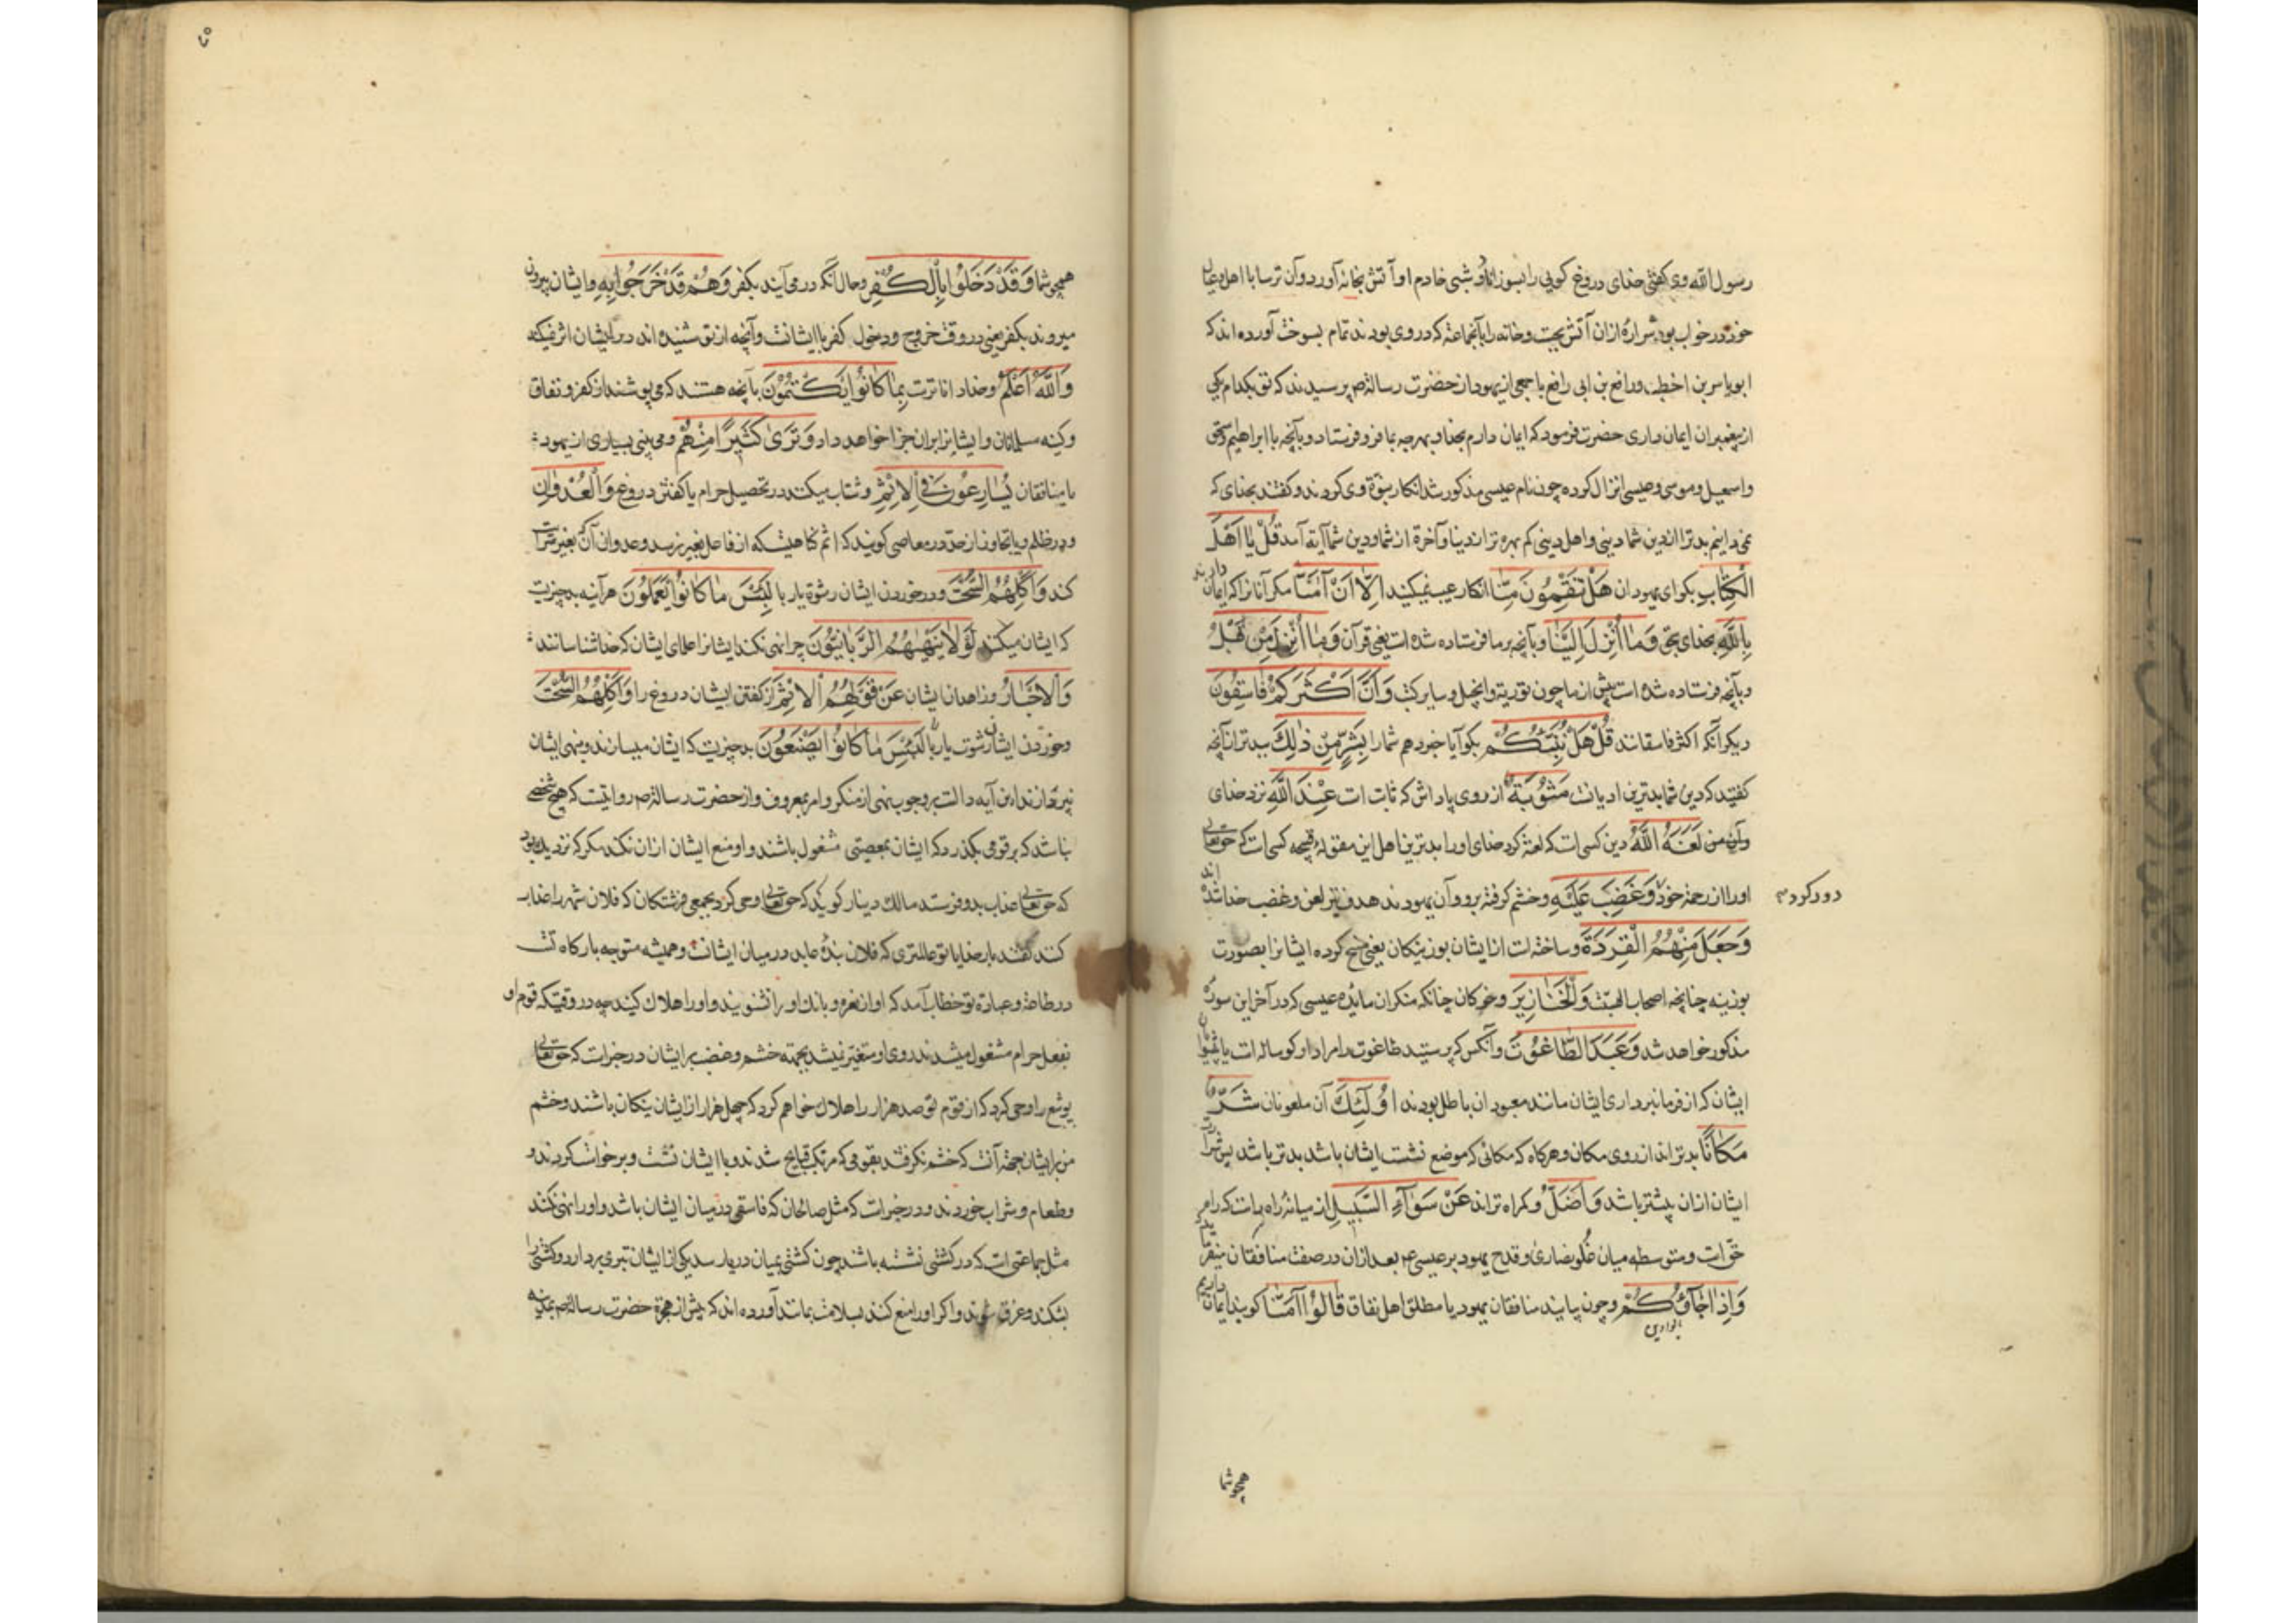 رسول الله وی کفتی خدای دروغ کویی را بسوزاناد و شبی خادم او آتش بخانه آورد و آن ترسا با اهل و عیال
خود در خواب بود شرارهٔ ازان آتش بجست و خانه را با آنجماعه که در وی بودند تمام بسوخت آورده اند که
ابو یاسر بن اخطب و رافع بن ابی رافع با جمعی از یهود از حضرت رسالة ص پرسیدند که تو بکدام یکی
از پیغمبران ایمان داری حضرت فرمود که ایمان دارم بخدا و بهرچه بما فرو فرستاد و بآنچه با ابراهیم و اسحق
و اسمعیل و موسی و عیسی انزال کرده چون نام عیسی مذکور شد انکار نبوة وی کردند و کفتند بخدای که
نمی دانیم بدتر از دین شما دینی و اهل دینی کم بهره تر از دنیا و آخرة از شما و دین شما آیة آمد قُلْ یَا اَهْلَ
الْکِتَابِ بکو ای یهودان هَلْ تَنْقِمُونَ مِنَّا انکار عیب نمیکنید اِلَّا اَنْ آمَنَّا مکر آنا نرا که ایمان دارند
بِاللّٰهِ بخدای بحق وَمَا اُنْزِلَ اِلَیْنَا و بآنچه بر ما فرستاده شده است یعنی قرآن وَمَا اُنْزِلَ مِنْ قَبْلُ
و بآنچه فرستاده شده است پیش از ما چون توریة و انجیل و سایر کتب وَاَنَّ اَکْثَرَکُمْ فَاسِقُونَ
دیکر آنکه اکثر فاسقانند قُلْ هَلْ نُنَبِّئُکُمْ بکو آیا خبر دهم شما را بِشَرٍّ مِنْ ذٰلِکَ ببدتر از آنچه
کفتید که دین شما بدترین ادیانست مَثُوبَةً از روی پاداش که ثابت است عِنْدَ اللّٰهِ نزد خدای
و آن من لَعَنَهُ اللّٰهُ دین کسی است که لعنة کرد خدای او را بدترین اهل این مقوله قبیحه کسی است که حق تعالی
او را از رحمة خود وَغَضِبَ عَلَیْهِ و خشم کرفته برو و آن یهودند هدف تیر لعن و غضب خدا شده اند
دور کرد م
وَجَعَلَ مِنْهُمُ الْقِرَدَةَ و ساخته است از ایشان بوزینکان یعنی مسخ کرده ایشانرا بصورت
بوزینه چنانچه اصحاب السبت وَالْخَنَازِیرَ و خوکان چنانکه منکران مایدهٔ عیسی که در آخر این سوره
مذکور خواهد شد وَعَبَدَ الطَّاغُوتَ و آنکس که پرستید طاغوت را مراد او کوساله است یا پیشوایان
ایشان که از فرمانبرداری ایشان مانند معبودان باطل بودند اُولٰئِکَ آن ملعونان شَرٌّ
مَکَانًا بدتراند از روی مکان و هرکاه که مکانی که موضع نشست ایشان باشد بدتر باشد پس شرارت
ایشان ازان بیشتر باشد وَاَضَلُّ و کمراه تراند عَنْ سَوَاءِ السَّبِیلِ از میانه راه راست که راه
حق است و متوسطه میان غلو نصاری و قدح یهود بر عیسی ع بعد ازان در صفت منافقان میفرماید که
وَاِذَا جَاؤُکُمْ و چون بیایند منافقان یهود یا مطلق اهل نفاق قَالُوا آمَنَّا کویند ایمان داریم
همچو شما
همچو شما وَقَدْ دَخَلُوا بِالْکُفْرِ و حال آنکه در می آیند بکفر وَهُمْ قَدْ خَرَجُوا بِهِ و ایشان بیرون
میروند بکفر یعنی در وقت خروج و دخول کفر با ایشانست و آنچه از تو شنیده اند در ایشان اثر نمیکند
وَاللّٰهُ اَعْلَمُ و خدا داناترست بِمَا کَانُوا یَکْتُمُونَ بآنچه هستند که می پوشند از کفر و نفاق
و کینه مسلمانان و ایشانرا بران جزا خواهد داد وَتَرٰی کَثِیرًا مِنْهُمْ و می بینی بسیاری از یهود
یا منافقان یُسَارِعُونَ فِی الْاِثْمِ و شتاب میکنند در تحصیل حرام یا کفتن دروغ وَالْعُدْوَانِ
و در ظلم و یا تجاوز از حد در معاصی کویند که اثم کناهیست که از فاعل بغیر نرسد و عدوان آنکه بغیر سرایت
کند وَاَکْلِهِمُ السُّحْتَ و در خوردن ایشان رشوة یا ربا لَبِئْسَ مَا کَانُوا یَعْمَلُونَ هرآینه بد چیزیست
که ایشان میکنند لَوْلَا یَنْهٰیهُمُ الرَّبَّانِیُّونَ چرا نهی نکند ایشانرا علمای ایشان که خداشناسانند
وَالْاَحْبَارُ و زاهدان ایشان عَنْ قَوْلِهِمُ الْاِثْمَ از کفتن ایشان دروغ را وَاَکْلِهِمُ السُّحْتَ
و خوردن ایشان رشوت یا ربا لَبِئْسَ مَا کَانُوا یَصْنَعُونَ بد چیزیست که ایشان میسازند و بنهی ایشان
نپردازند این آیه دالست بر وجوب نهی از منکر و امر بمعروف و از حضرت رسالة ص روایتست که هیچ شخصی
نباشد که بر قومی بکذرد که ایشان بمعصیتی مشغول باشند و او منع ایشان ازان نکند مکر که نزدیک بود
که حق تعالی عذاب بدو فرستد مالک دینار کوید که حق تعالی وحی کرد بجمعی فرشتکان که فلان شهر را عذاب
کنند کفتند بار خدایا تو عالمتری که فلان بندهٔ عابد در میان ایشانست و همیشه متوجه بارکاه تست
در طاعة و عبادة تو خطاب آمد که اوازه نعره و بانک او را نشنویند و او را هلاک کنید چه در وقتیکه قوم او
بفعل حرام مشغول میشدند روی او متغیر نیشد بجهته خشم و غضب بر ایشان در خبرست که حق تعالی
یوشع را وحی کرد که از قوم تو صد هزار را هلاک خواهم کرد که چهل هزار از ایشان نیکان باشند و خشم
من بر ایشان بجهة آنست که خشم نکرفتند بقومی که مرتکب قبایح شدند و با ایشان نشست و برخواست کردند و
و طعام و شراب خوردند و در خبرست که مثل صالحان که فاسقی در میان ایشان باشد و او را نهی نکنند
مثل جماعتی است که در کشتی نشسته باشند چون کشتی بمیان دریا رسد یکی از ایشان تبری بردارد و کشتی را
بشکند و غرق شوند و اکر او را منع کنند بسلامت بمانند آورده اند که پیش از هجرة حضرت رسالة ص بمدینه